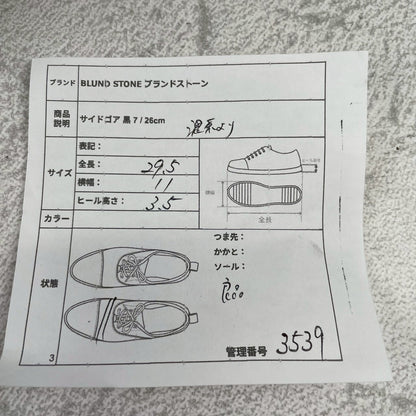 ブランド BLUND STONE ブランドストーン
商品説明 サイドゴア 黒 7 / 26cm
サイズ
表記：
全長： 29.5
横幅： 11
ヒール高さ： 3.5
全長
カラー
状態
つま先：
かかと：
ソール：
3
管理番号 3539